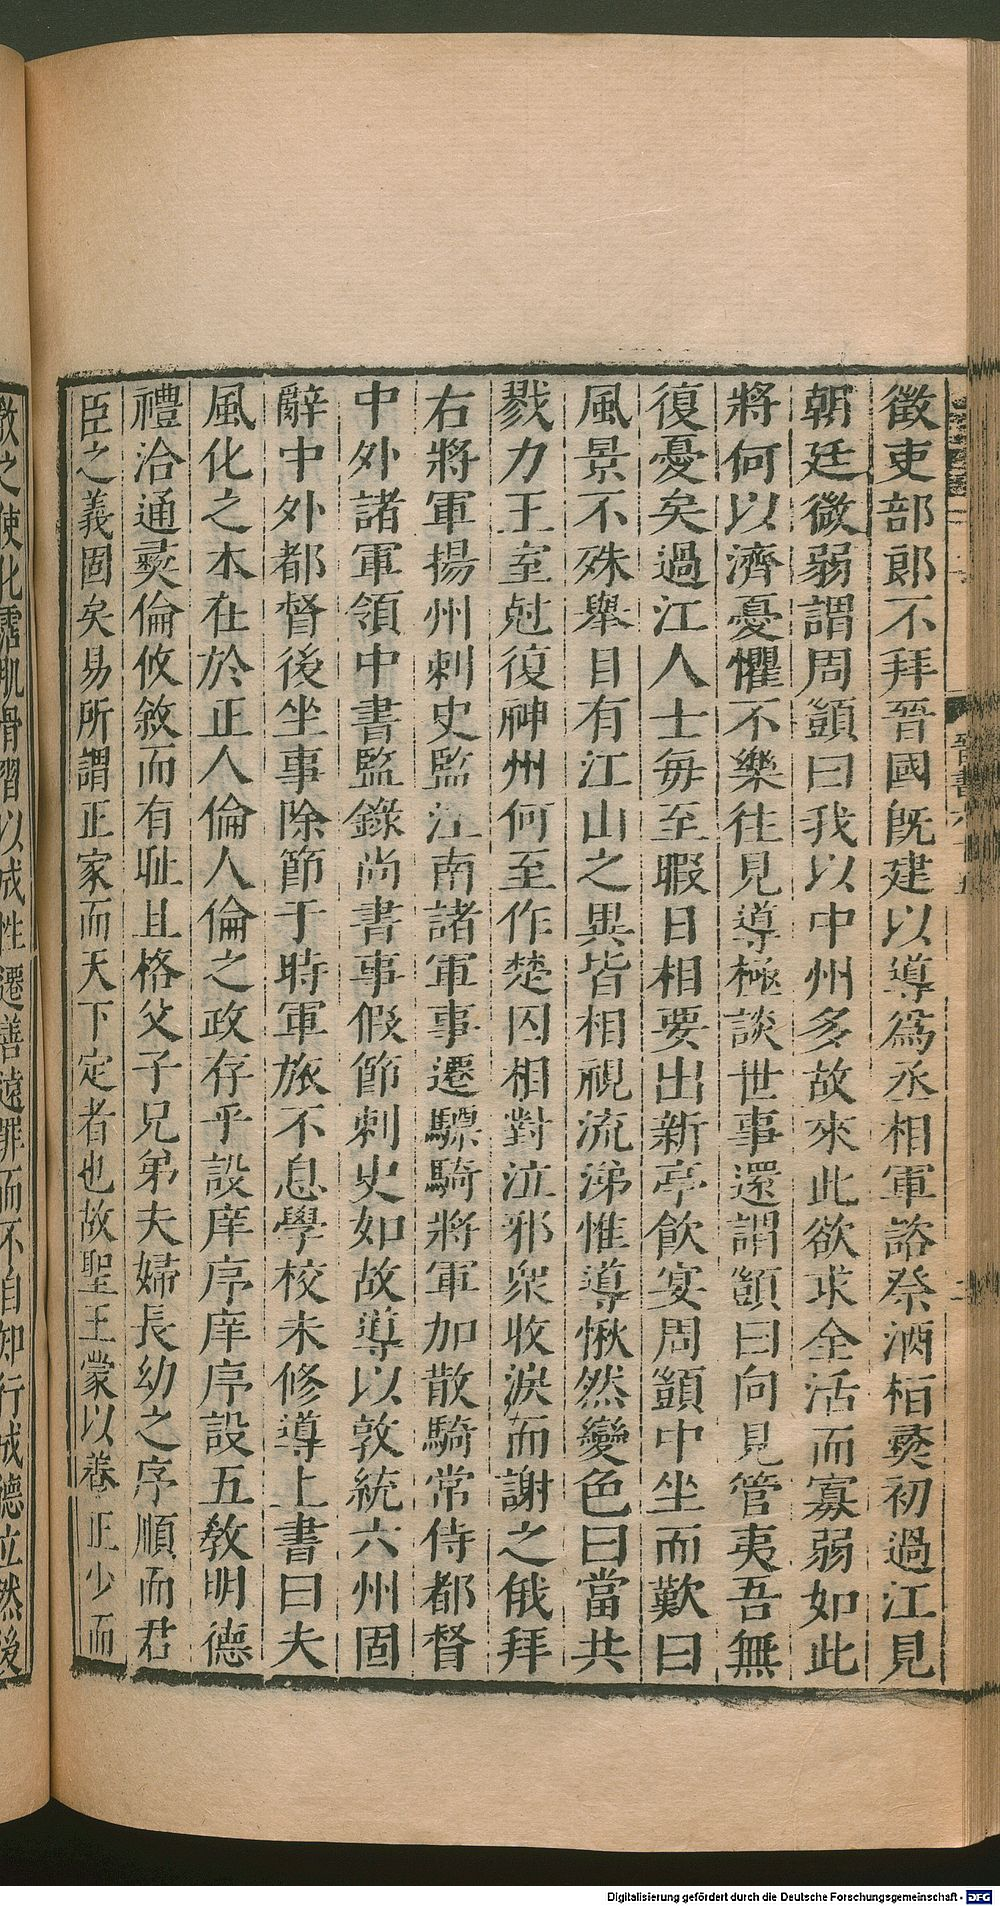 徵吏部郎不拜晉國既建以導爲丞相軍諮祭酒栢彝初過江見
朝廷微弱謂周顗曰我以中州多故來此欲求全活而寡弱如此
將何以濟憂懼不樂往見導極談世事還謂顗曰向見管夷吾無
復憂矣過江人士每至暇日相要出新亭飲宴周顗中坐而歎曰
風景不殊舉目有江山之異皆相視流涕惟導愀然變色曰當共
戮力王室尅復神州何至作楚囚相對泣邪衆收淚而謝之俄拜
右將軍揚州刺史監江南諸軍事遷驃騎將軍加散騎常侍都督
中外諸軍領中書監錄尚書事假節刺史如故導以敦統六州固
辭中外都督後坐事除節于時軍旅不息學校未修導上書曰夫
風化之本在於正人倫人倫之政存乎設庠序庠序設五敎明德
禮洽通彝倫攸敘而有耻且格父子兄弟夫婦長幼之序順而君
臣之義固矣易所謂正家而天下定者也故聖王蒙以養正少而
敎之使化霑肌骨習以成性遷善遠罪而不自知行成德立然後
晉書
Digitalisierung gefördert durch die Deutsche Forschungsgemeinschaft - DFG